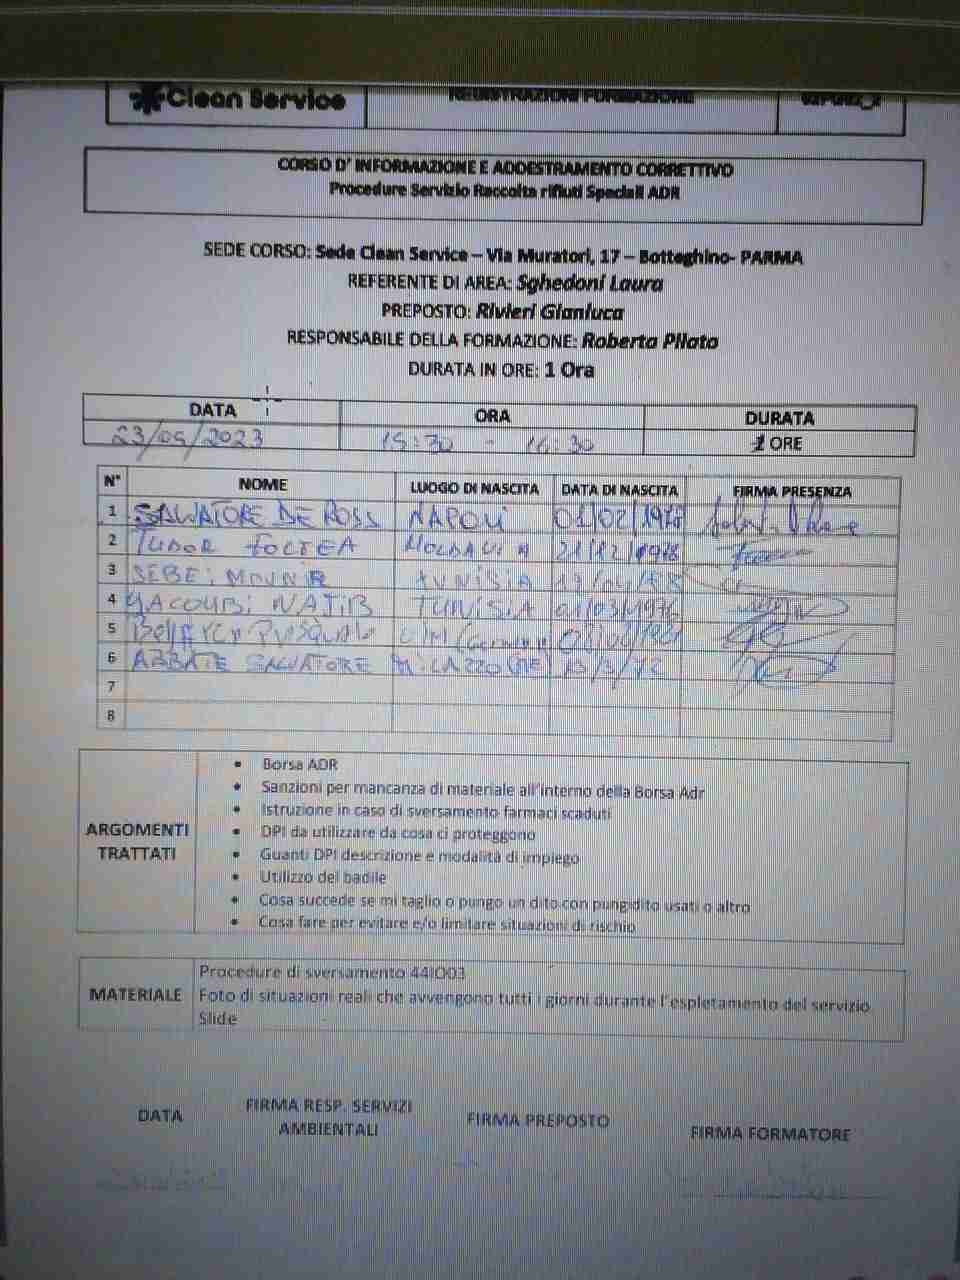 Clean Service
REGISTRAZIONI FORMAZIONE
CORSO D' INFORMAZIONE E ADDESTRAMENTO CORRETTIVO
Procedure Servizio Raccolta rifiuti Speciali ADR
SEDE CORSO: Sede Clean Service – Via Muratori, 17 – Botteghino- PARMA
REFERENTE DI AREA: Sghedoni Laura
PREPOSTO: Rivieri Gianluca
RESPONSABILE DELLA FORMAZIONE: Roberta Pilato
DURATA IN ORE: 1 Ora
DATA ORA DURATA
23/05/2023 15:30 - 16:30 1 ORE
N° NOME LUOGO DI NASCITA DATA DI NASCITA FIRMA PRESENZA
1 SALVATORE DE ROSS NAPOLI 01/02/1978
2 TUDOR FOCTEA MOLDAVIA 21/12/1978
3 SEBEI MOUNIR TUNISIA
4 YACOUBI NAJIB TUNISIA 01/03/1976
5
6 ABBATE SALVATORE MILAZZO (ME) 13/3/72
7
8
ARGOMENTI TRATTATI
• Borsa ADR
• Sanzioni per mancanza di materiale all'interno della Borsa Adr
• Istruzione in caso di sversamento farmaci scaduti
• DPI da utilizzare da cosa ci proteggono
• Guanti DPI descrizione e modalità di impiego
• Utilizzo del badile
• Cosa succede se mi taglio o pungo un dito con pungidito usati o altro
• Cosa fare per evitare e/o limitare situazioni di rischio
MATERIALE
Procedure di sversamento 44IO03
Foto di situazioni reali che avvengono tutti i giorni durante l'espletamento del servizio
Slide
DATA
FIRMA RESP. SERVIZI
AMBIENTALI
FIRMA PREPOSTO
FIRMA FORMATORE